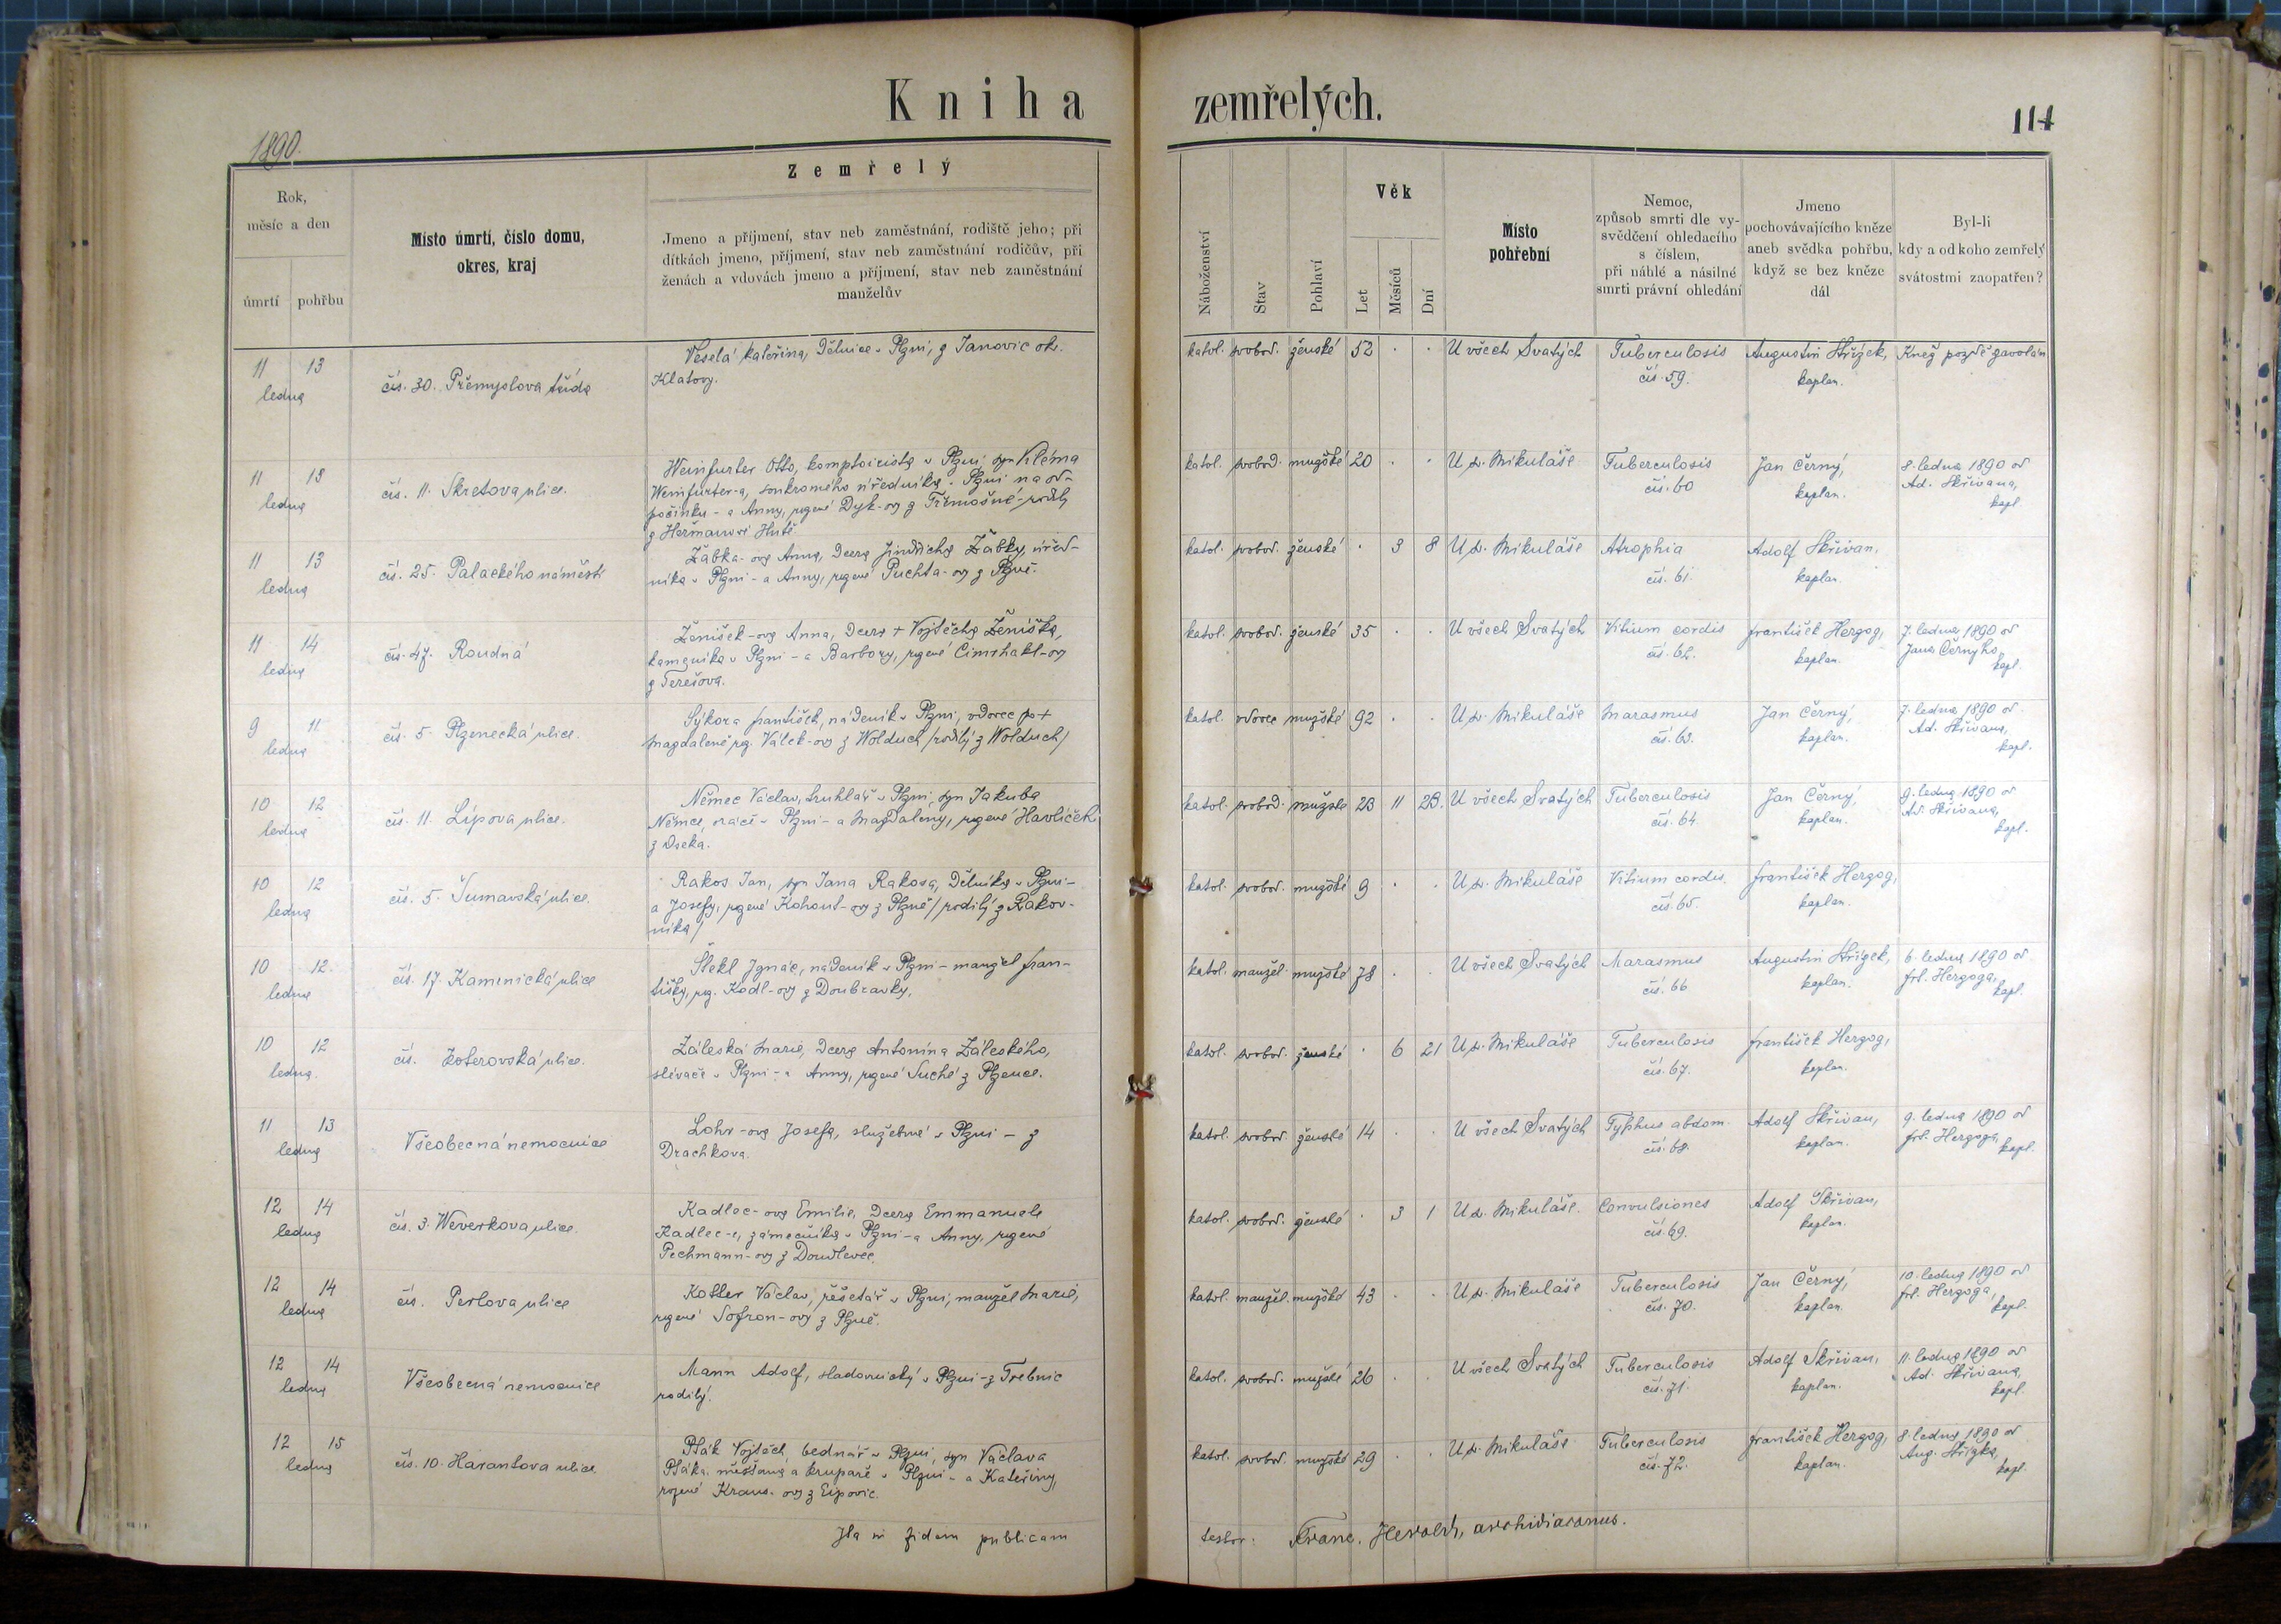 Kniha zemřelých.
114
1890.
Rok,
měsíc a den
úmrtí
pohřbu
Místo úmrtí, číslo domu,
okres, kraj
Zemřelý
Jmeno a příjmení, stav neb zaměstnání, rodiště jeho; při
dítkách jmeno, příjmení, stav neb zaměstnání rodičův, při
ženách a vdovách jmeno a příjmení, stav neb zaměstnání
manželův
Náboženství
Stav
Pohlaví
Věk
Let
Měsíců
Dní
Místo
pohřební
Nemoc,
způsob smrti dle vy-
svědčení ohledacího
s číslem,
při náhlé a násilné
smrti právní ohledání
Jmeno
pochovávajícího kněze
aneb svědka pohřbu,
když se bez kněze
dál
Byl-li
kdy a od koho zemřelý
svátostmi zaopatřen?
11 13
ledna
čís. 30. Přemyslova třída
Veselá Kateřina, dělnice v Plzni, z Janovic ok.
Klatovy.
katol. svobod. ženské 52 . . U všech Svatých
Tuberculosis
čís. 59.
Augustin Střízek,
kaplan.
Kněz pozdě zavolán
11 13
ledna
čís. 11. Skretova ulice.
Weinfurter Otto, komptoirista v Plzni, syn Kléma
Weinfurter-a, soukromého úředníka v Plzni na od-
počinku - a Anny, rozené Dyk-ovy z Třemošné - rodilý
z Heřmanovi Hutě
katol. svobod. mužské 20 . . U sv. Mikuláše
Tuberculosis
čís. 60
Jan Černý,
kaplan.
8. ledna 1890 od
Ad. Skřivana,
kapl.
11 13
ledna
čís. 25. Palackého náměstí
Žabka-ova Anna, dcera Jindřicha Žabky, úřed-
níka v Plzni - a Anny, rozené Puchta-ovy z Plzně.
katol. svobod. ženské . 3 8 U sv. Mikuláše
Atrophia
čís. 61.
Adolf Skřivan,
kaplan.
11 14
ledna
čís. 47. Roudná
Ženíšek-ova Anna, dcera + Vojtěcha Ženíška,
kameníka v Plzni - a Barbory, rozené Cimrhakl-ovy
z Terešova.
katol. svobod. ženské 35 . . U všech Svatých
Vitium cordis
čís. 62.
František Herzog,
kaplan.
7. ledna 1890 od
Jana Černýho,
kapl.
9 11
ledna
čís. 5. Plzenecká ulice.
Sýkora František, nádeník v Plzni, vdovec po +
Magdaleně roz. Válek-ovy z Wolduch /rodilý z Wolduch/
katol. vdovec mužské 92 . . U sv. Mikuláše
Marasmus
čís. 63.
Jan Černý,
kaplan.
7. ledna 1890 od
Ad. Skřivana,
kapl.
10 12
ledna
čís. 11. Lípova ulice.
Němec Václav, truhlář v Plzni, syn Jakuba
Němce, oráče v Plzni - a Magdaleny, rozené Havlíček
z Oseka.
katol. svobod. mužské 23 11 23. U všech Svatých
Tuberculosis
čís. 64.
Jan Černý,
kaplan.
9. ledna 1890 od
Ad. Skřivana,
kapl.
10 12
ledna
čís. 5. Šumavská ulice.
Rakos Jan, syn Jana Rakosa, dělníka v Plzni -
a Josefy, rozené Kohout-ovy z Plzně /rodilý z Rakov-
níka/
katol. svobod. mužské 9 . . U sv. Mikuláše
Vitium cordis.
čís. 65.
František Herzog,
kaplan.
10 12.
ledna
čís. 17. Kamenická ulice
Štekl Ignác, nádeník v Plzni - manžel Fran-
tišky, roz. Kodl-ovy z Doubravky.
katol. manžel. mužské 78 . . U všech Svatých
Marasmus
čís. 66
Augustin Střízek,
kaplan.
6. ledna 1890 od
frt. Herzoga,
kapl.
10 12
ledna.
čís. Koterovská ulice.
Záleská Marie, dcera Antonína Záleského,
slévače v Plzni - a Anny, rozené Suché z Plzence.
katol. svobod. ženské . 6 21 U sv. Mikuláše
Tuberculosis
čís. 67.
František Herzog,
kaplan.
11 13
ledna
Všeobecná nemocnice
Lohr-ova Josefa, služebná v Plzni - z
Drachkova.
katol. svobod. ženské 14 . . U všech Svatých
Typhus abdom.
čís. 68.
Adolf Skřivan,
kaplan.
9. ledna 1890 od
frt. Herzoga,
kapl.
12 14
ledna
čís. 3. Weverkova ulice.
Kadlec-ova Emilie, dcera Emmanuele
Kadlec-e, zámečníka v Plzni - a Anny, rozené
Pechmann-ovy z Doudlevec.
katol. svobod. ženské . 3 1 U sv. Mikuláše.
Convulsiones
čís. 69.
Adolf Skřivan,
kaplan.
12 14
ledna
čís. Perlova ulice
Kotler Václav, řešetář v Plzni, manžel Marie,
rozené Sofron-ovy z Plzně.
katol. manžel. mužské 43 . . U sv. Mikuláše
Tuberculosis
čís. 70.
Jan Černý,
kaplan.
10. ledna 1890 od
frt. Herzoga,
kapl.
12 14
ledna
Všeobecná nemocnice
Mann Adolf, sladovnický v Plzni - z Trebnic
rodilý.
katol. svobod. mužské 26 . . U všech Svatých
Tuberculosis
čís. 71.
Adolf Skřivan,
kaplan.
11. ledna 1890 od
Ad. Skřivana,
kapl.
12 15
ledna
čís. 10. Harantova ulice
Pták Vojtěch, bednář v Plzni, syn Václava
Ptáka, měšťana a krupaře v Plzni - a Kateřiny,
rozené Kraus-ovy z Ejpovic.
katol. svobod. mužské 29 . . U sv. Mikuláše
Tuberculosis
čís. 72.
František Herzog,
kaplan.
8. ledna 1890 od
Aug. Střízka,
kapl.
Ita in fidem publicam
testor: Franc. Herold, archidiaconus.